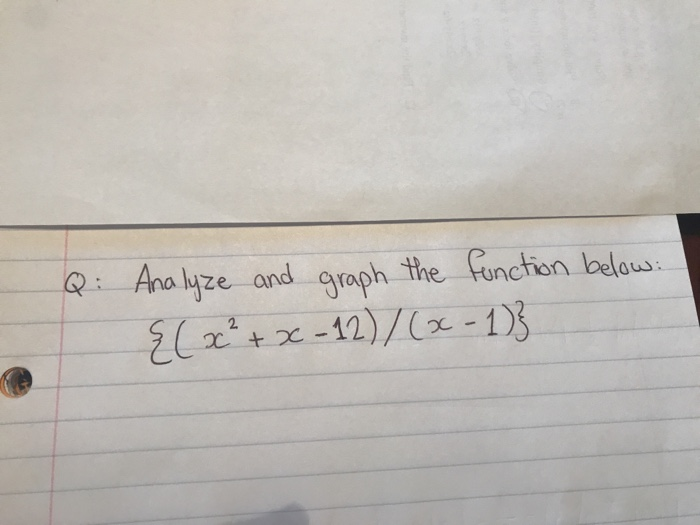 Q: Analyze and graph the function below:
{(x² + x - 12)/(x - 1)}